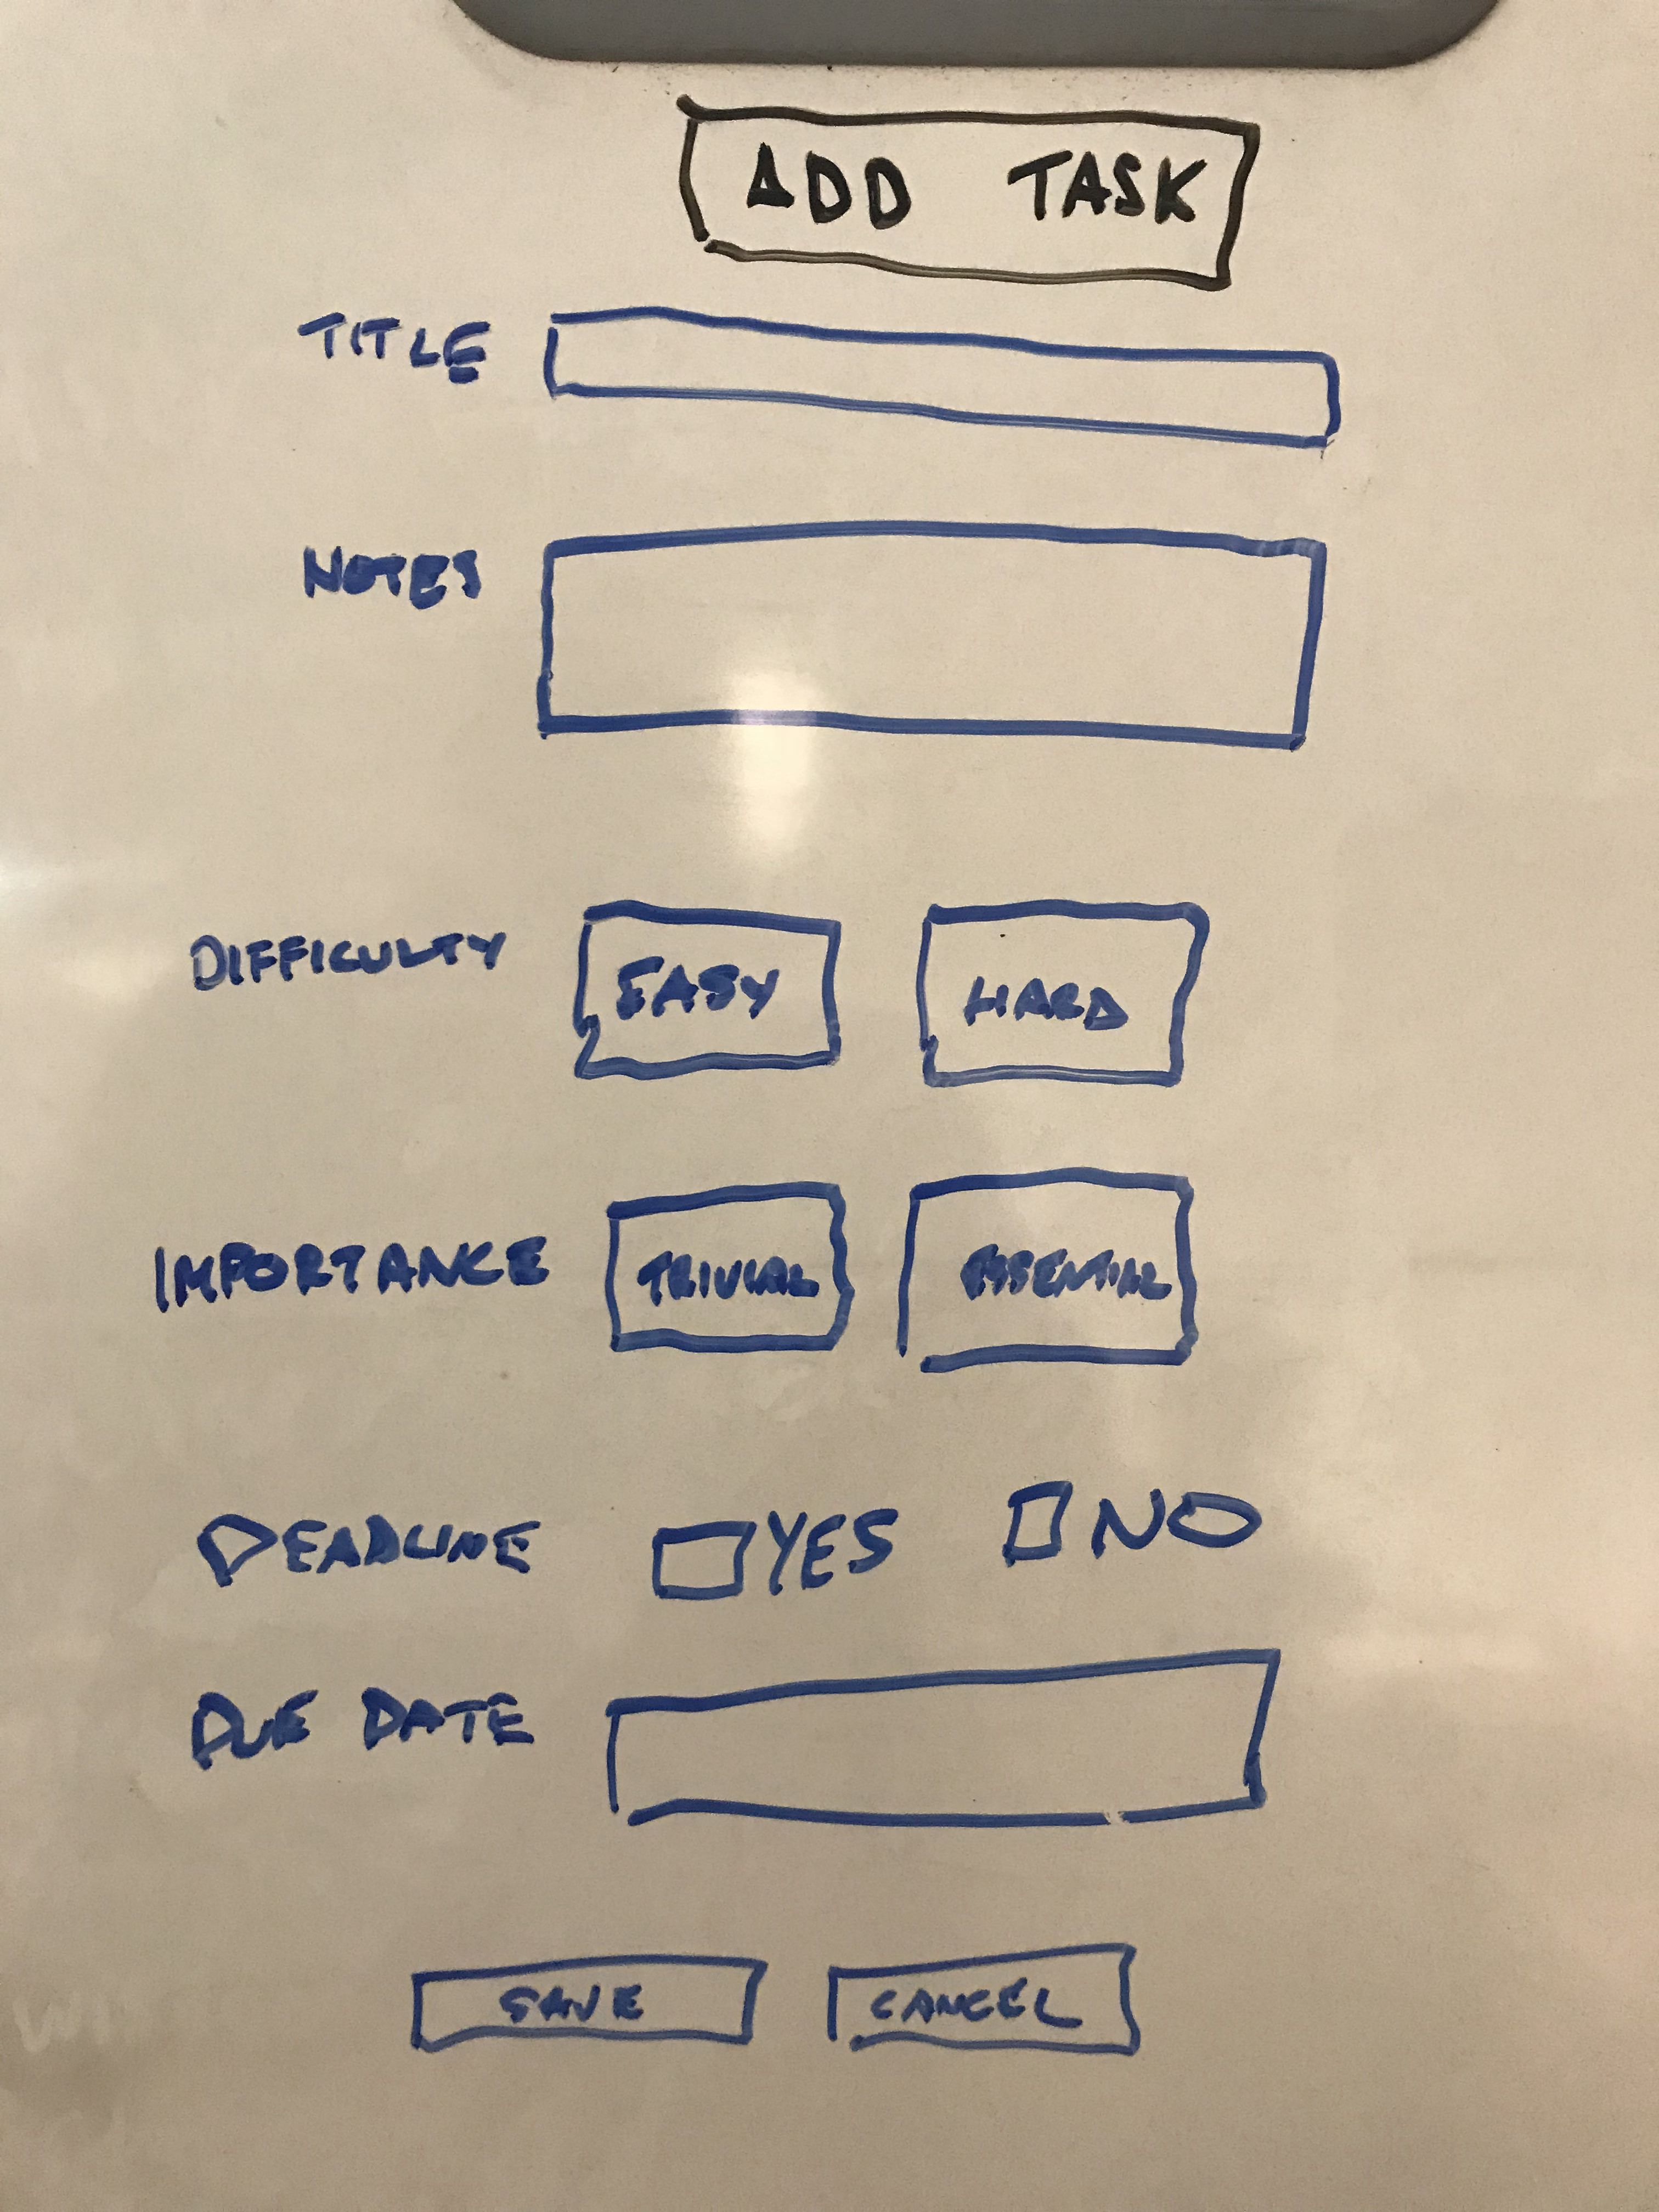 ADD TASK
TITLE
NOTES
DIFFICULTY EASY HARD
IMPORTANCE TRIVIAL ESSENTIAL
DEADLINE YES NO
DUE DATE
SAVE CANCEL